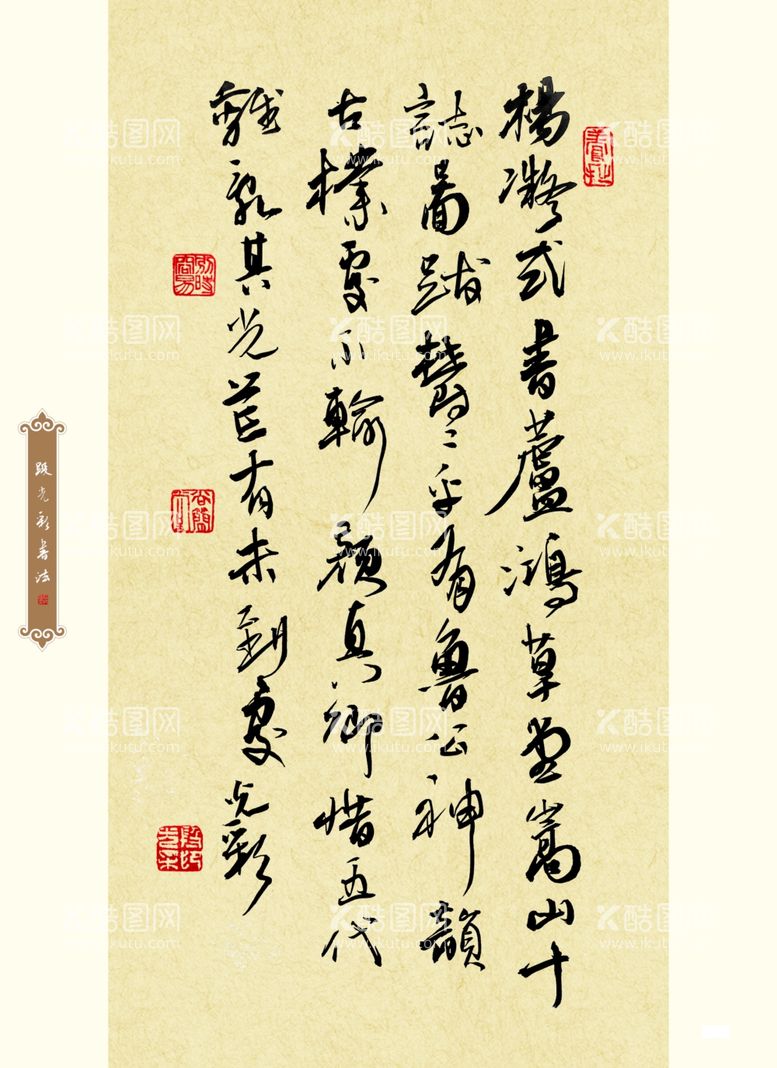 楊凝式書蘆鴻草堂嵩山十
誌圖跋欝〻乎有魯公神韻
古樸處不輸顏真卿惜五代
離亂其光芒有未到處光彩
段光彩書法
酷图网
www.ikutu.com